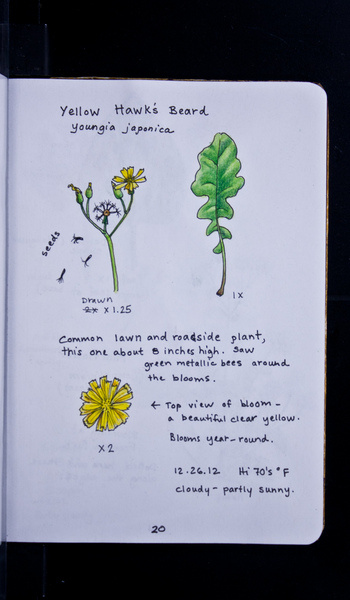 Yellow Hawk's Beard
Youngia japonica
seeds
Drawn
2x x 1.25
1x
Common lawn and roadside plant,
this one about 8 inches high. Saw
green metallic bees around
the blooms.
← Top view of bloom –
a beautiful clear yellow.
Blooms year-round.
x 2
12.26.12 Hi 70's °F
cloudy - partly sunny.
20